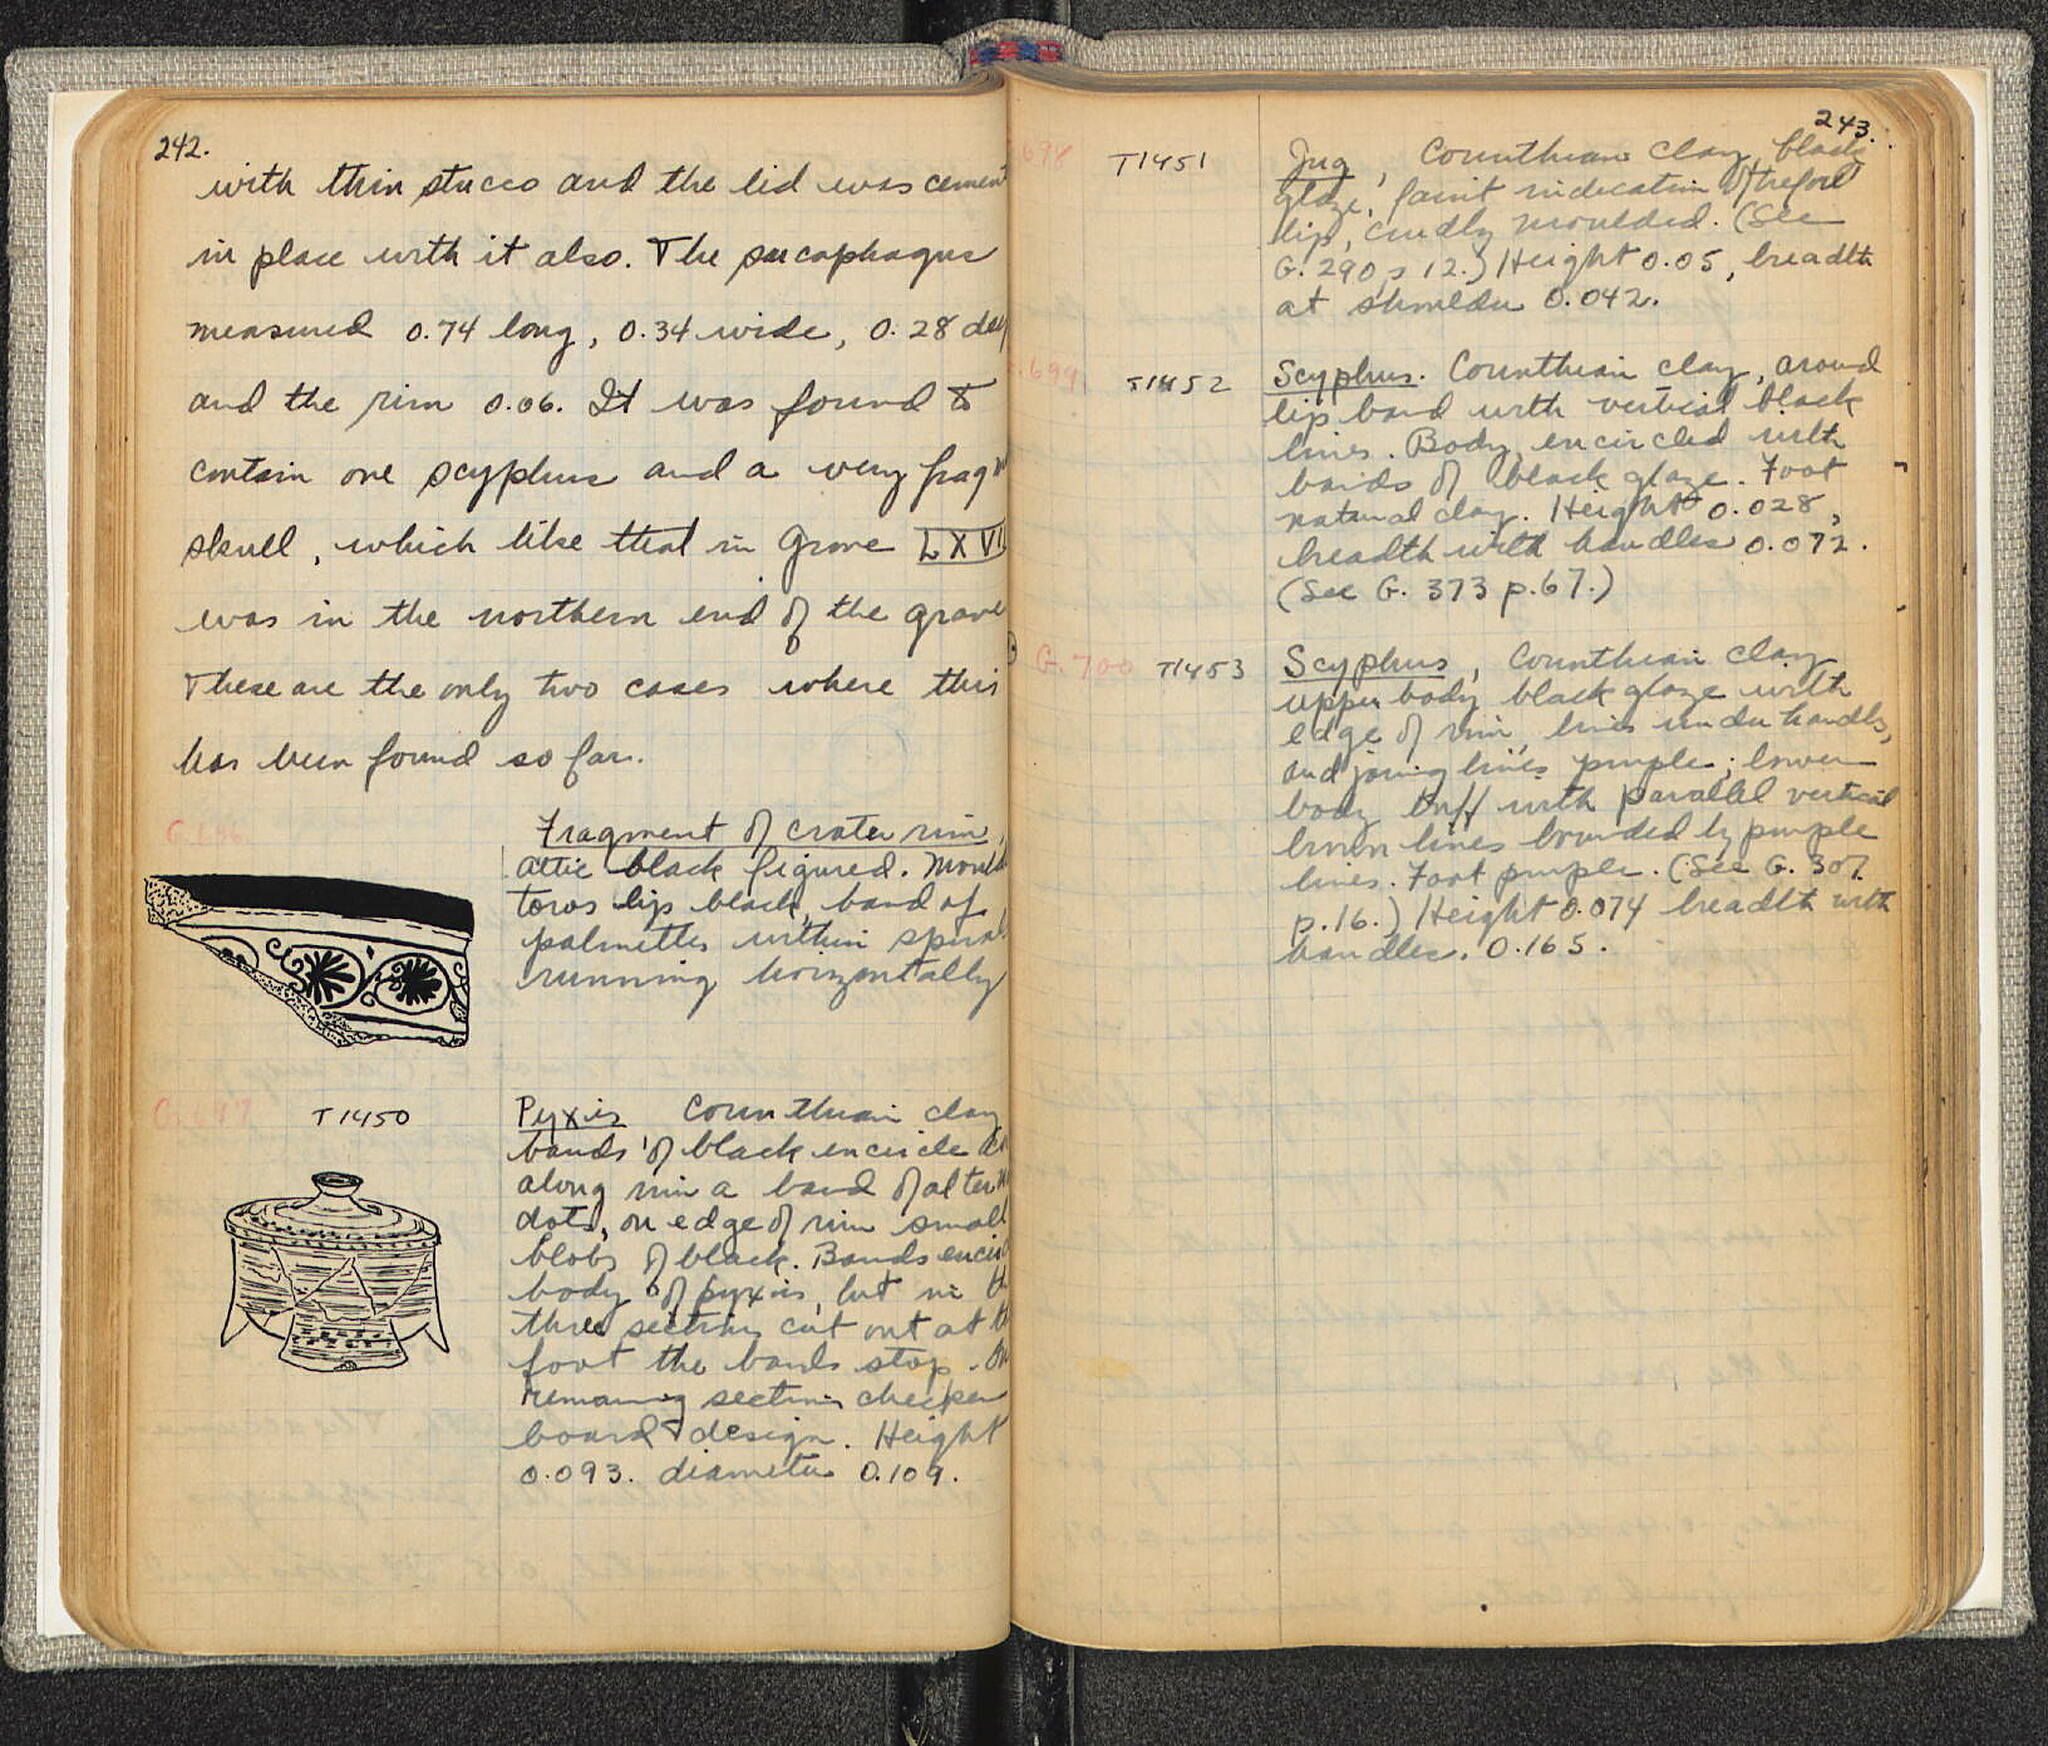 242.
with thin stucco and the lid was cement
in place with it also. The sarcophagus
measured 0.74 long, 0.34 wide, 0.28 deep
and the rim 0.06. It was found to
contain one scyphus and a very fragm
skull, which like that in Grave LXVII
was in the northern end of the grave
These are the only two cases where this
has been found so far.
G.696
Fragment of crater rim,
Attic black figured. Mould
torus lip black, band of
palmettes within spiral
running horizontally
G.697
T1450
Pyxis Corinthian clay
bands of black encircle
along rim a band of altern
dots, on edge of rim small
blobs of black. Bands encir
body of pyxis, but in th
three sections cut out at th
foot the bands stop. On
remaining section checker
board design. Height
0.093. diameter 0.109.
243.
698
T1451
Jug, Corinthian clay, black
glaze, faint indication of trefoil
lip, crudly moulded. (See
G. 290, s 12.) Height 0.05, breadth
at shoulder 0.042.
.699
T1452
Scyphus. Corinthian clay, around
lip band with vertical black
lines. Body encircled with
bands of black glaze. Foot
natural clay. Height 0.028,
breadth with handles 0.072.
(See G. 373 p.67.)
G.700
T1453
Scyphus, Corinthian clay
upper body black glaze with
edge of rim, lines under handles,
and joining lines purple; lower
body buff with parallel vertical
brown lines bounded by purple
lines. Foot purple. (See G. 307
p.16.) Height 0.074 breadth with
handles. 0.165.